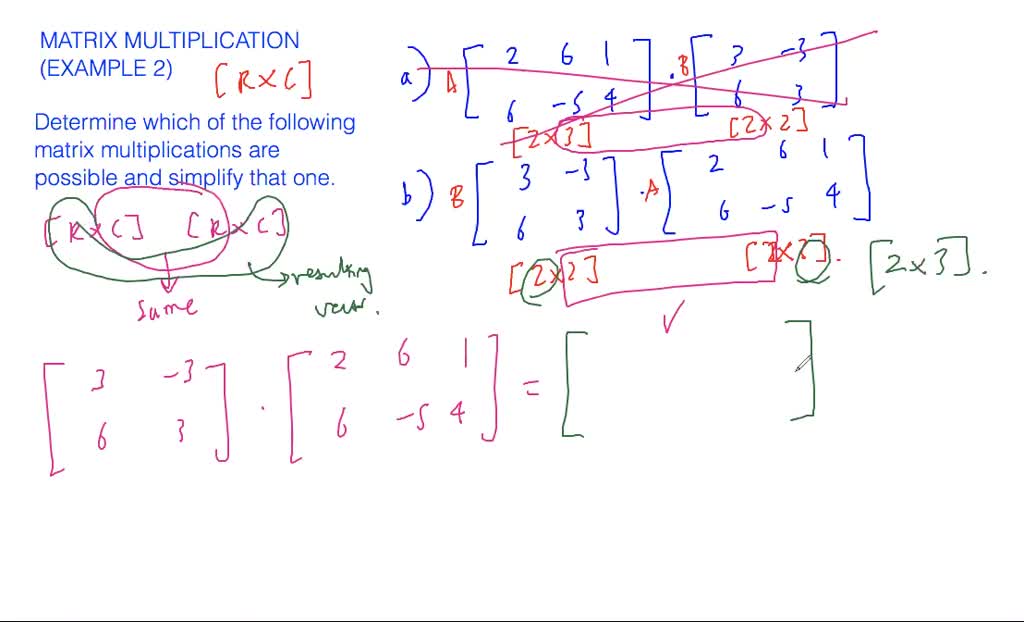 MATRIX MULTIPLICATION
(EXAMPLE 2)
[R×C]
Determine which of the following
matrix multiplications are
possible and simplify that one.
[R×C] [R×C]
same
resulting
a) A [2 6 1
6 -5 4] · B [3 -3
6 3]
[2×3] [2×2]
b) B [3 -3
6 3] · A [2 6 1
6 -5 4]
[2×2] [2×3]. [2×3].
✓
[3 -3
6 3] · [2 6 1
6 -5 4] = [ ]